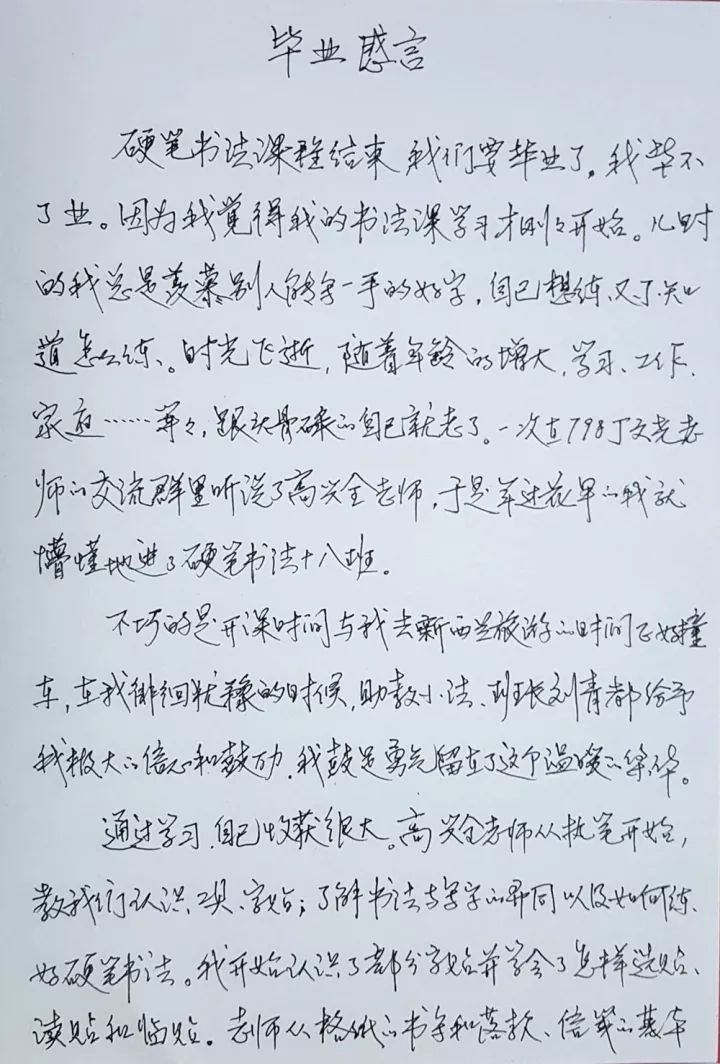 毕业感言
硬笔书法课程结束 我们要毕业了。我毕不
了业。因为我觉得我的书法课学习才刚々开始。儿时
的我总是羡慕别人能写一手的好字，自己想练又不知
道怎么练。时光飞逝，随着年龄的增大，学习、工作、
家庭……等々，跟头骨碌的自己就老了。一次在798丁文尧老
师的交流群里听说了高兴全老师，于是年过花甲的我就
懵懂地进了硬笔书法十八班。
不巧的是开课时间与我去新西兰旅游的时间正好撞
车，在我徘徊犹豫的时候，助教小洁、班长刘青都给予
我极大的信心和鼓励，我鼓足勇气留在了这个温暖的集体。
通过学习，自己收获很大。高兴全老师从执笔开始，
教我们认识 字帖；了解书法与写字的异同以及如何练
好硬笔书法。我开始认识了部分字帖并学会了怎样选帖、
读帖和临帖。老师从格纸的书写和落款、信笺的基本